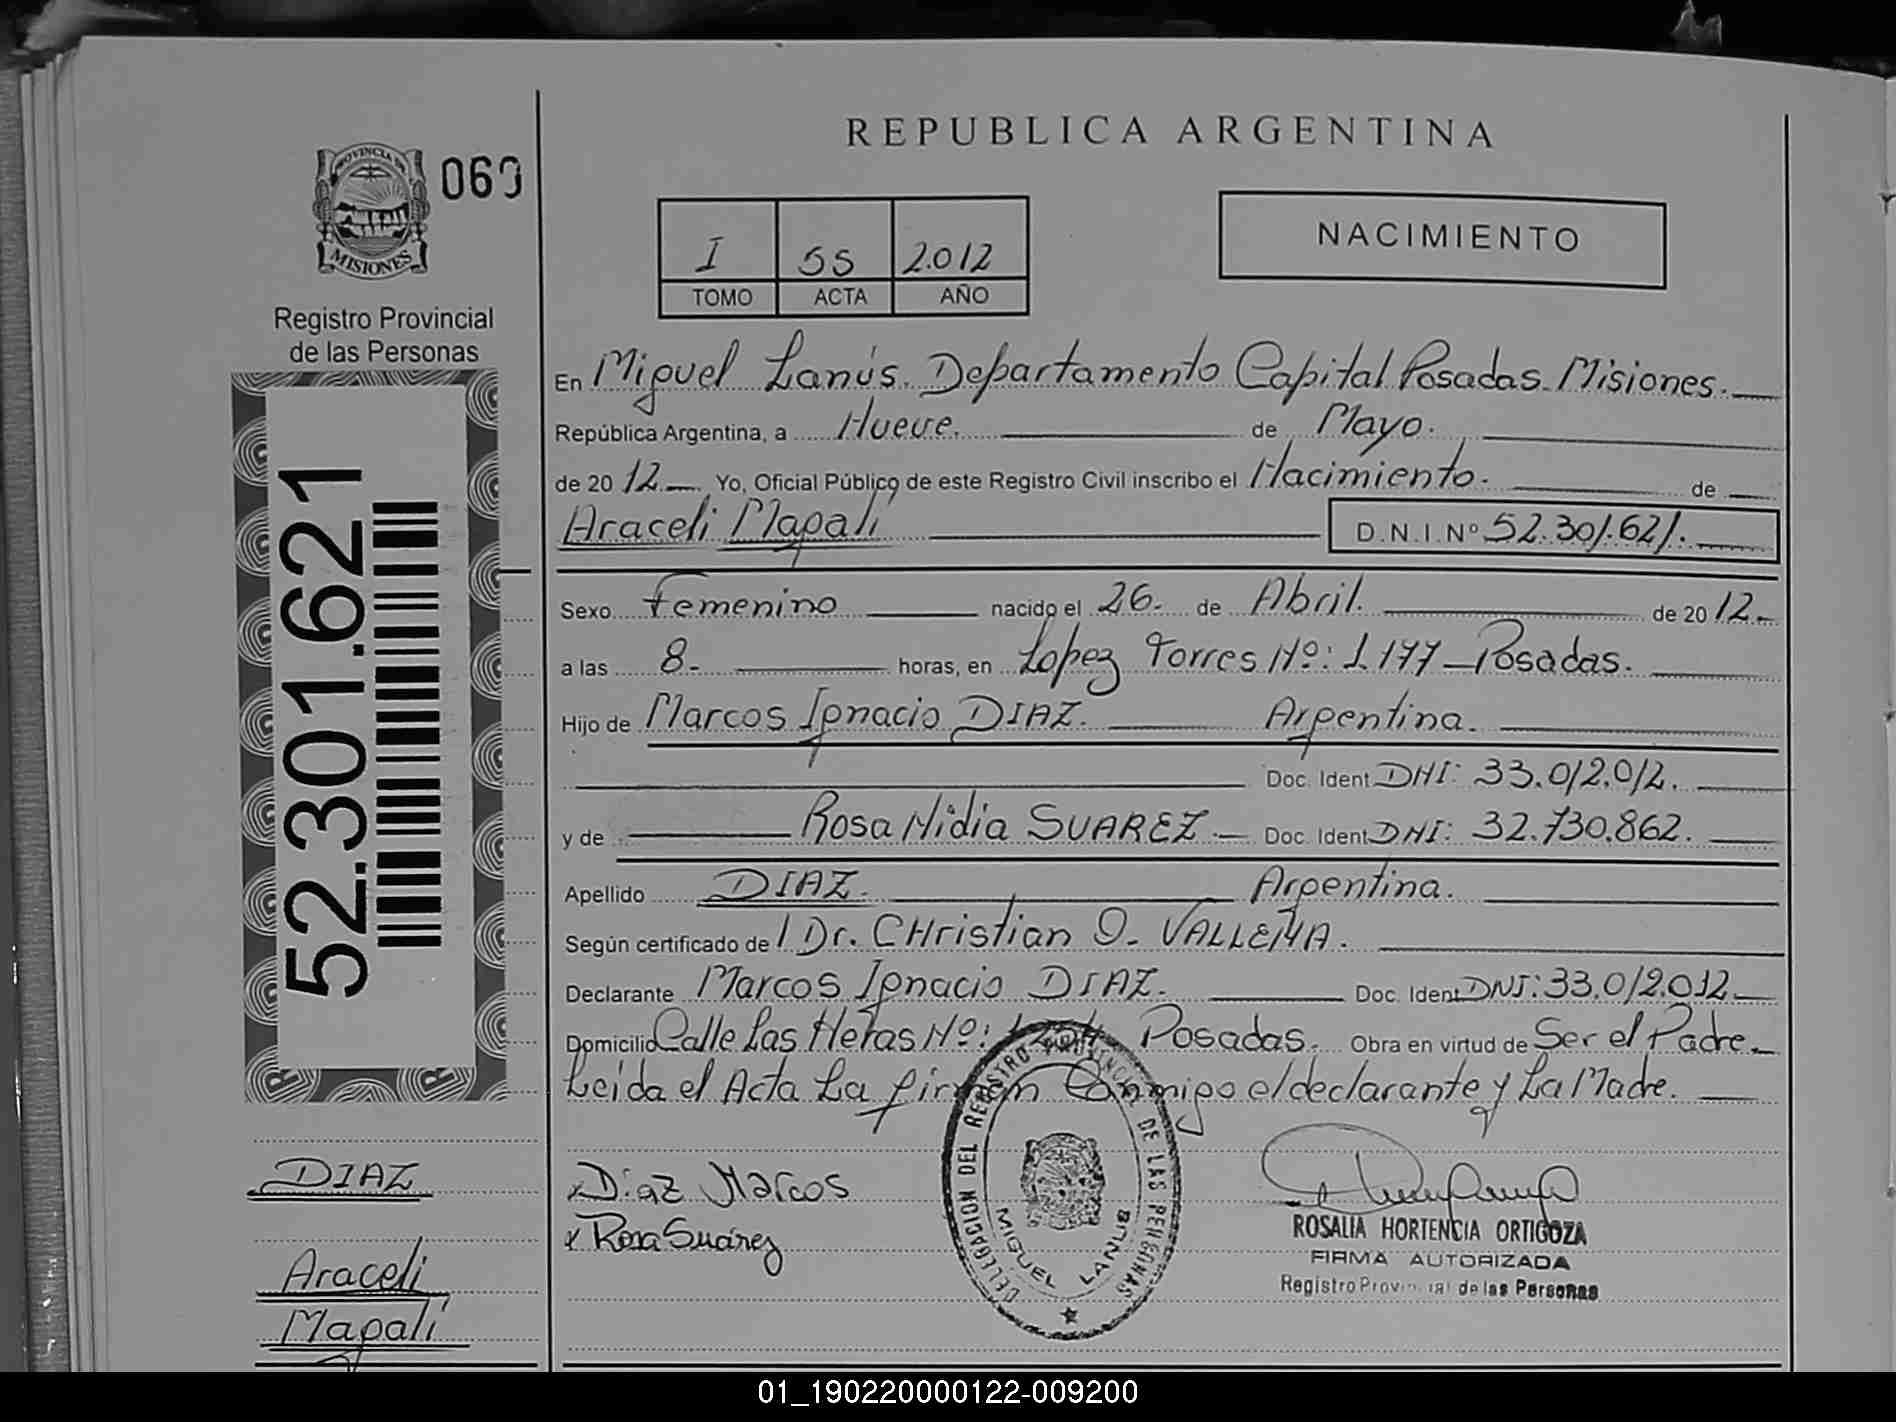 REPUBLICA ARGENTINA
PROVINCIA DE
MISIONES
060
Registro Provincial
de las Personas
I 55 2.012
TOMO ACTA AÑO
NACIMIENTO
En Miguel Lanús. Departamento Capital Posadas. Misiones.
República Argentina, a Nueve. de Mayo.
de 20 12 Yo, Oficial Público de este Registro Civil inscribo el Nacimiento. de
Araceli Magalí D.N.I. Nº 52.301.621.
Sexo Femenino nacido el 26. de Abril. de 20 12
a las 8. horas, en Lopez Torres Nº: 1.177 Posadas.
Hijo de Marcos Ignacio DIAZ. Argentina.
Doc. Ident DNI: 33.012.012.
y de Rosa Nidia SUAREZ. Doc. Ident DNI: 32.730.862.
Apellido DIAZ. Argentina.
Según certificado de l Dr. CHristian O. VALLENA.
Declarante Marcos Ignacio DIAZ. Doc. Ident DNI: 33.012.012
Domicilio Calle Las Heras Nº: Posadas. Obra en virtud de Ser el Padre.
Leida el Acta La firman Conmigo el declarante y La Madre.
52.301.621
DIAZ
Araceli
Magalí
x Diaz Marcos
x Rosa Suárez
DELEGACION DEL REGISTRO PROVINCIAL DE LAS PERSONAS
MIGUEL LANUS
ROSALIA HORTENCIA ORTIGOZA
FIRMA AUTORIZADA
Registro Provincial de las Personas
01_190220000122-009200